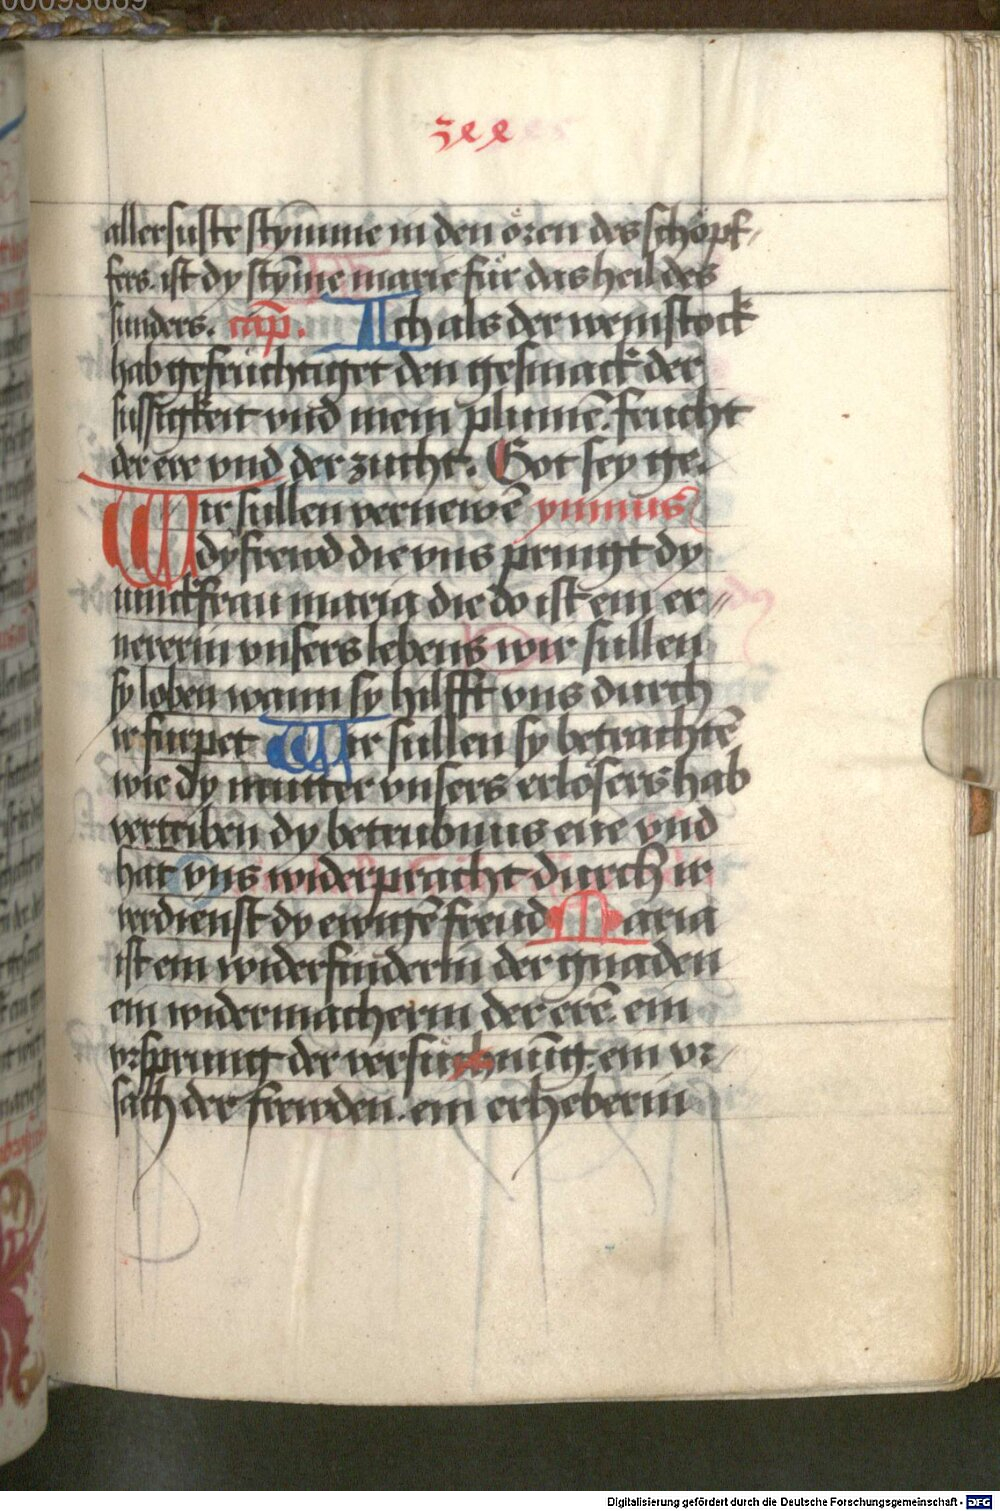 00093669
allersuste stÿmme in den ören des schöpf-
fers. ist dy stÿme marie für das heil des
sunders. cap̄. Ich als der weinstock
hab gefruchtiget den gesmack der
sussigkeit vnd mein plumē. frucht
der ere vnd der zucht. Got sey ge.
Wir sullen vernewē ymnus
dy frewd die vns pringt dy
iunckfrau maria die do ist ein er-
nererin vnsers lebens wir sullen
sy loben wann sy hilfft vns durch
ir furpet Wir sullen sy betrachtē
wie dy mutter vnsers erlösers hab
vertriben dy betrubnus eue vnd
hat vns widerpracht durch ir
verdienst dy ewigē freud Maria
ist ein widerfinderin der gnaden
ein widermacherin der erē. ein
vrsprung der versünung. ein vr-
sach der frewden. ein erheberin
Digitalisierung gefördert durch die Deutsche Forschungsgemeinschaft - DFG